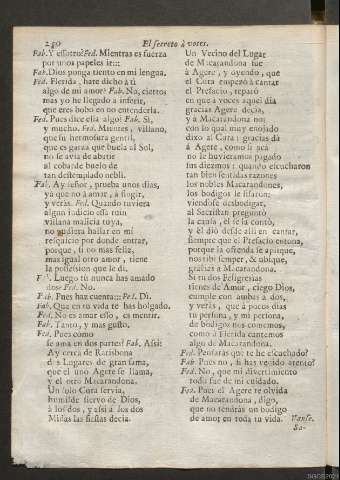 230 El secreto à voces.
Fab. Y essotro? Fed. Mientras es fuerza
por unos papeles ir:::
Fab. Dios ponga tiento en mi lengua.
Fed. Flerida, hate dicho à ti
algo de mi amor? Fab. No, ciertos
mas yo he llegado à inferir,
que eres bobo en no entenderla.
Fed. Pues dice ella algo? Fab. Si,
y mucho. Fed. Mientes, villano,
que su hermosura gentil,
que es garza que buela al Sol,
no se avia de abatir
al cobarde buelo de
tan destemplado nebli.
Fab. Ay señor, prueba unos dias,
ya que no à amar, à fingir,
y veràs. Fed. Quando tuviera
algun indicio essa ruin
villana malicia tuya,
no pudiera hallar en mi
resquicio por donde entrar,
porque, si no mas feliz,
mas igual otro amor, tiene
la possession que le di.
Fab. Luego tù nunca has amado
dos? Fed. No.
Fab. Pues haz cuenta::: Fed. Di.
Fab. Que en tu vida te has holgado.
Fed. No es amar esso, es mentir.
Fab. Tanto, y mas gusto.
Fed. Pues como
se ama en dos partes? Fab. Assi:
Ay cerca de Ratisbona
dos Lugares de gran fama,
que el uno Agere se llama,
y el otro Macarandona.
Un solo Cura servia,
humilde siervo de Dios,
à los dos, y assi à los dos
Missas las fiestas decia.
Un Vecino del Lugar
de Macarandona fue
à Agere, y oyendo, que
el Cura empezò à cantar
el Prefacio, reparò
en que à voces aquel dia
gracias Agere decia,
y à Macarandona no;
con lo qual muy enojado
dixo al Cura: gracias dà
à Agere, como si acà
no le huvieramos pagado
sus diezmos: quando escucharon
tan bien sentidas razones
los nobles Macarandones,
los bodigos le sisaron:
viendose desbodigar,
al Sacristan preguntò
la causa, èl se la contò,
y èl diò desde alli en cantar,
siempre que el Prefacio entona,
porque la ofrenda se aplique,
nos tibi semper, & ubique,
gracias à Macarandona.
Si tu dos Feligresias
tienes de Amor, ciego Dios,
cumple con ambas à dos,
y veràs, que à pocos dias
tu persona, y mi persona,
de bodigos nos comemos,
como à Flerida cantemos
algo de Macarandona.
Fed. Pensaràs que te he escuchado?
Fab. Pues no, si has vejado atento?
Fed. No, que mi divertimiento
todo fue de mi cuidado.
Fab. Pues el Agere te olvida
de Macarandona, digo,
que no tendràs un bodigo
de amor en toda tu vida. Vanse.
Sa-